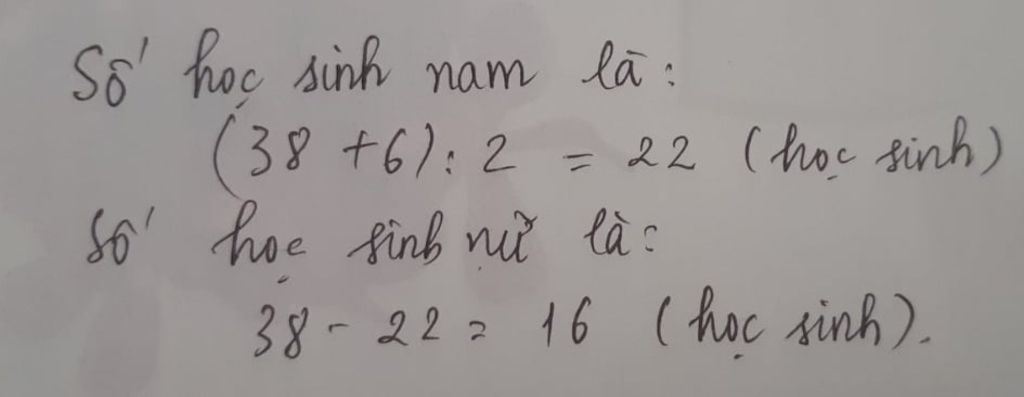 Số học sinh nam là:
(38 + 6) : 2 = 22 (học sinh)
Số học sinh nữ là:
38 - 22 = 16 (học sinh).